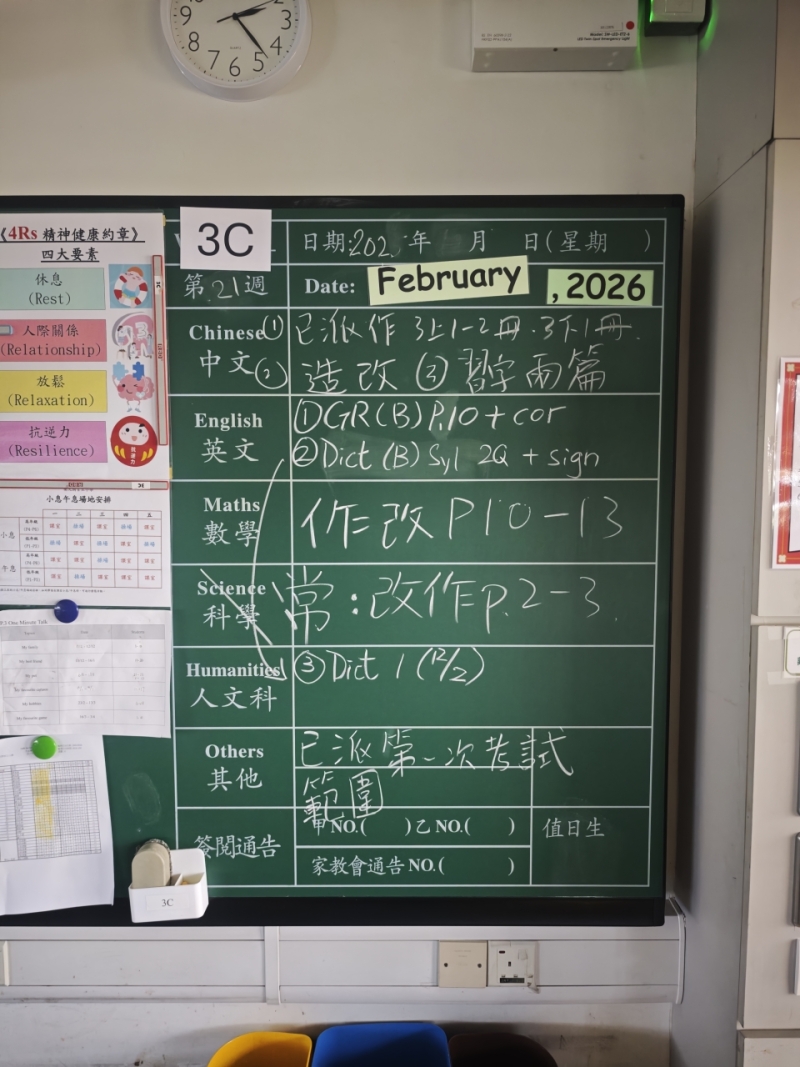 3C
日期:202 年 月 日(星期 )
第.21週
Date: February , 2026
Chinese 中文
① 已派作 3上1-2冊.3下1冊.
② 造改 ③ 習字兩篇
English 英文
①GR(B) P.10 + cor
②Dict (B) Syl 2Q + sign
Maths 數學
作=改 P10-13
Science 科學
常:改作=p.2-3.
Humanities 人文科
③Dict 1 (12/2)
Others 其他
已派第一次考試
範圍
簽閱通告
甲NO.( )乙NO.( )
家教會通告NO.( )
值日生
《4Rs 精神健康約章》
四大要素
休息
(Rest)
人際關係
(Relationship)
放鬆
(Relaxation)
抗逆力
(Resilience)
小息午息場地安排
小息
午息
One Minute Talk
3C
12
2
3
4
5
6
7
8
9